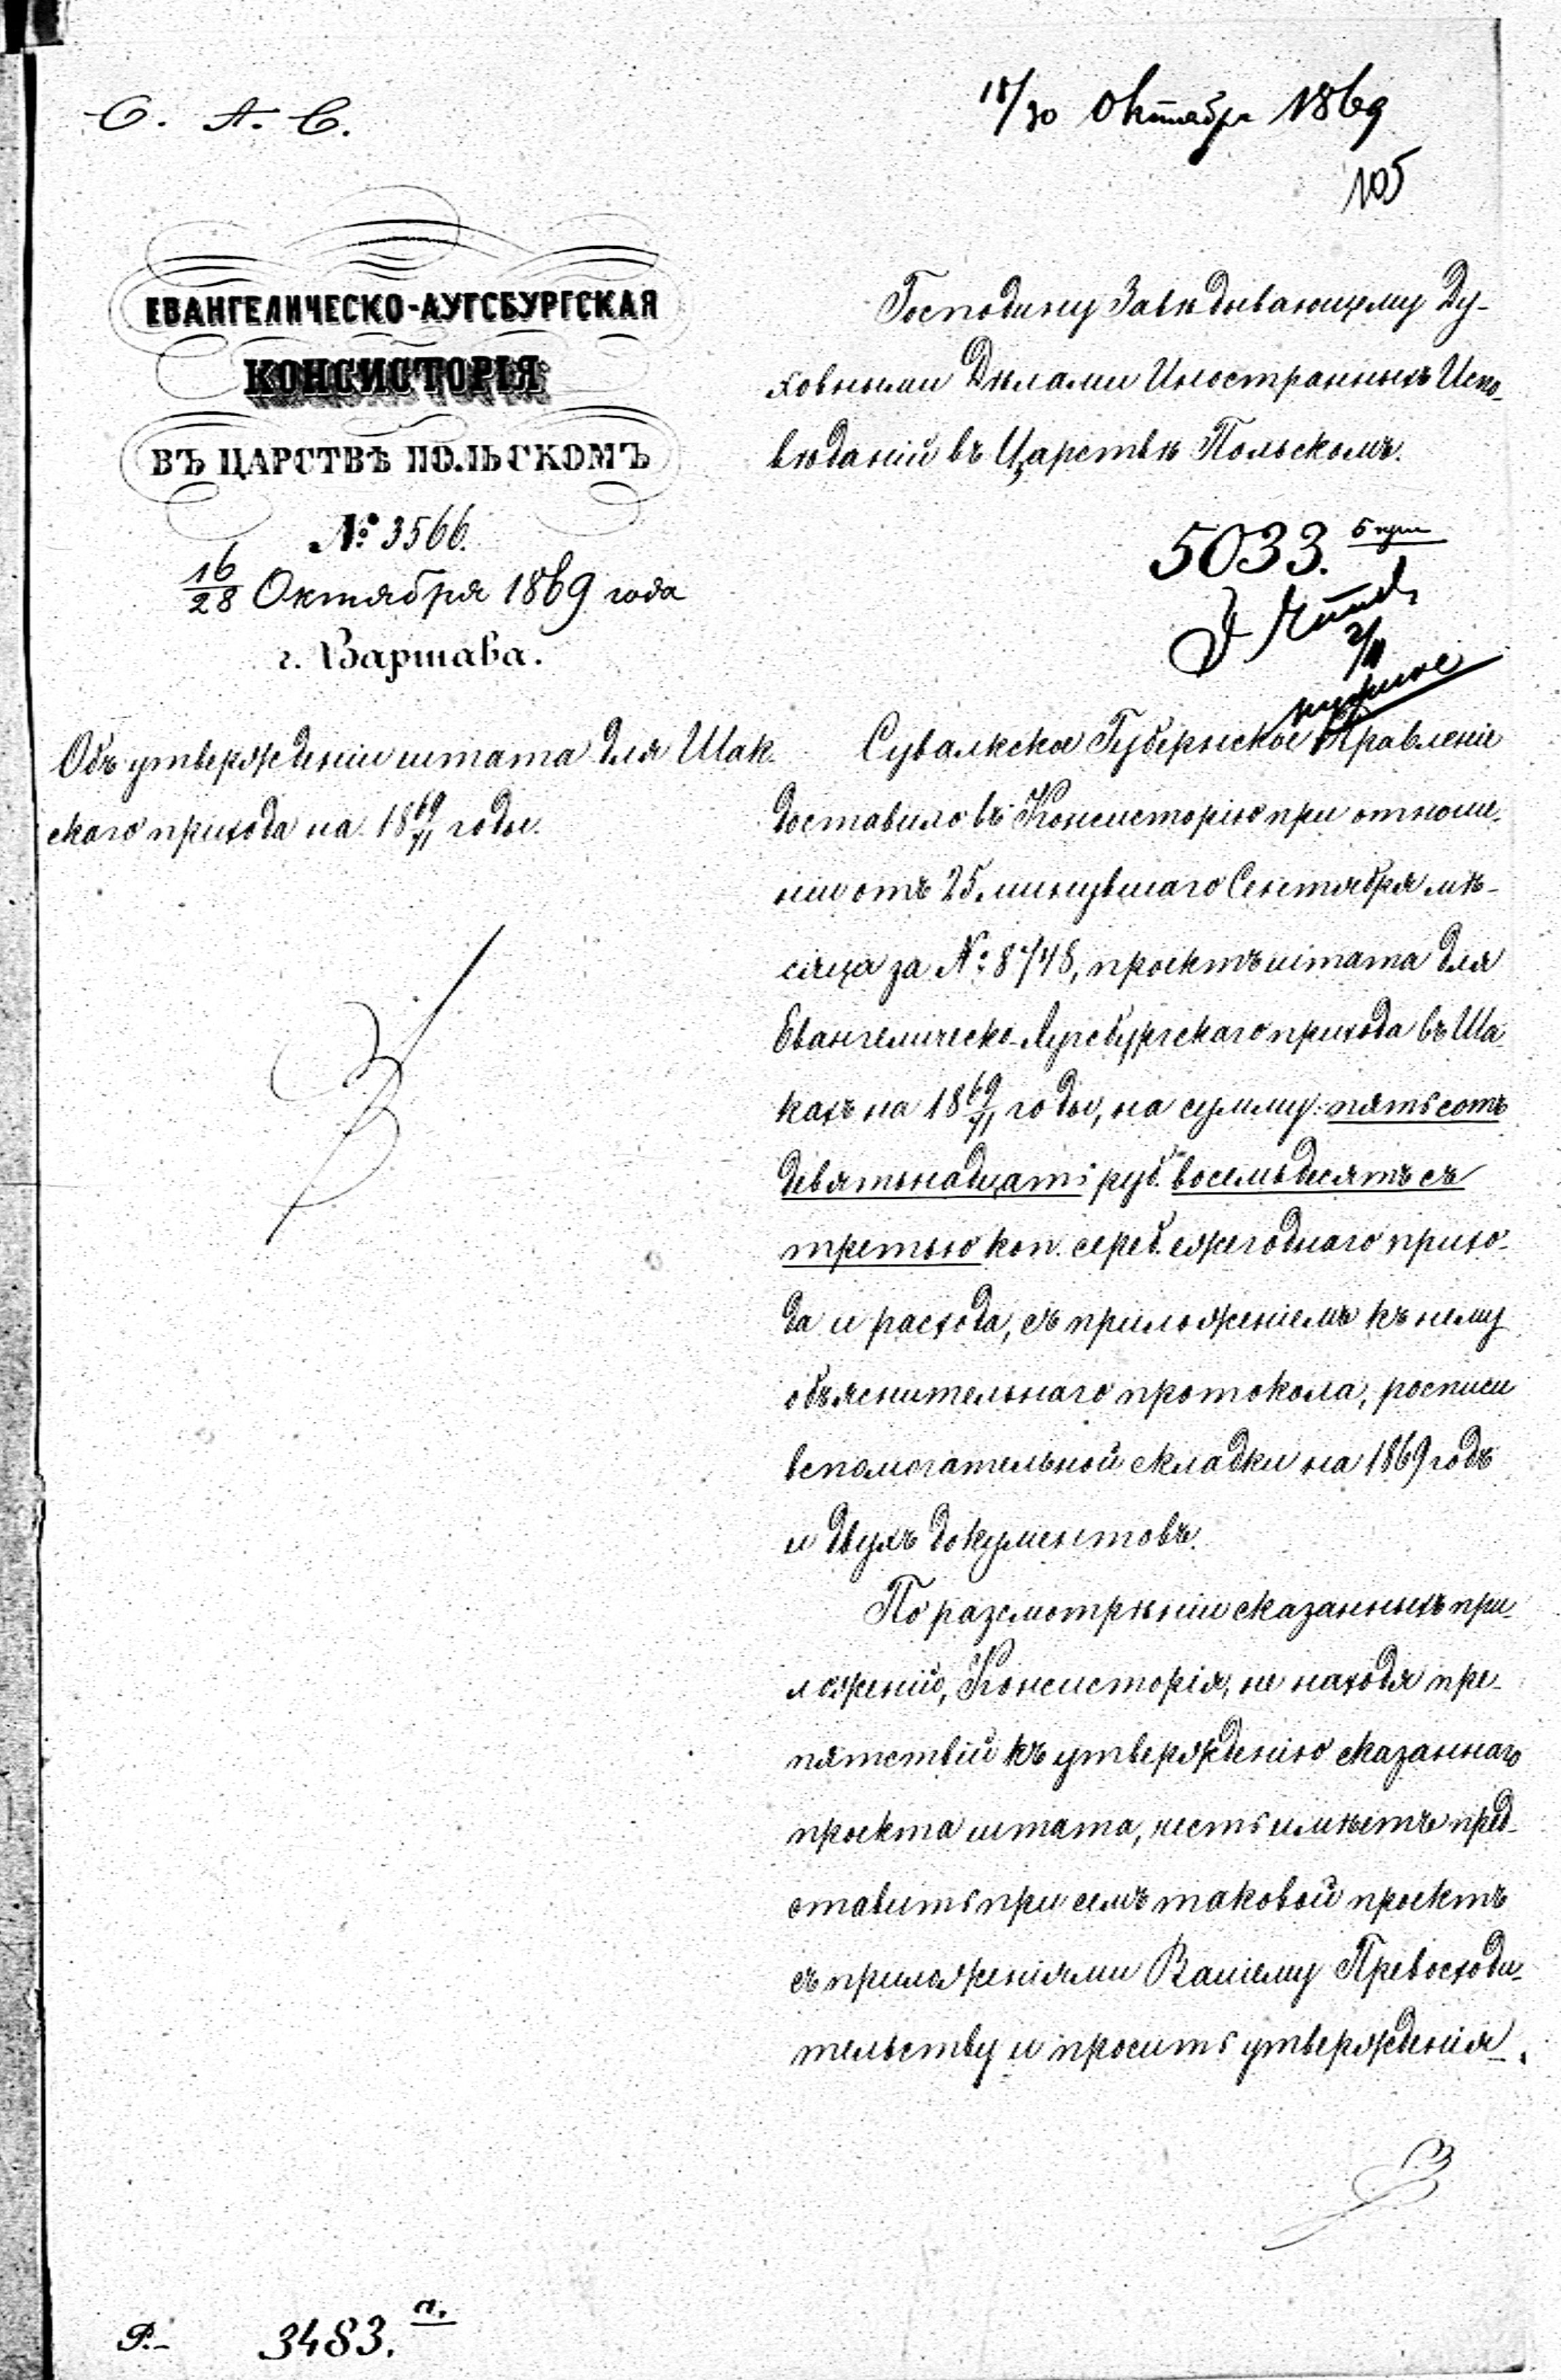 С. А. С.
18/30 Октября 1869
105
ЕВАНГЕЛИЧЕСКО-АУГСБУРГСКАЯ
КОНСИСТОРІЯ
ВЪ ЦАРСТВѢ ПОЛЬСКОМЪ
№ 3566.
16/28 Октября 1869 года
г. Варшава.
Объ утвержденіи штата для Шак-
скаго прихода на 1869/71 годы.
Господину Завѣдывающему Ду-
ховными Дѣлами Иностранныхъ Испо-
вѣданій въ Царствѣ Польскомъ.
5033.
2/11
Сувалкское Губернское Правленіе
доставило въ Консисторію при отноше-
ніи отъ 25. минувшаго Сентября мѣ-
сяца за №: 8748, проектъ штата для
Евангелическо-Аугсбургскаго прихода въ Ша-
кахъ на 1869/71 годы, на сумму: пятьсотъ
девятьнадцать руб. восемьдесятъ съ
третью коп. сереб. ежегоднаго прихо-
да и расхода, съ приложеніемъ къ нему
объяснительнаго протокола, росписи
вспомогательной складки на 1869 годъ
и двухъ документовъ.
По разсмотрѣніи сказанныхъ при-
ложеній, Консисторія, не находя пре-
пятствій къ утвержденію сказаннаго
проекта штата, честь имѣетъ пред-
ставить при семъ таковой проектъ
съ приложеніями Вашему Превосходи-
тельству и просить утвержденія.
Р.-
3483. а.